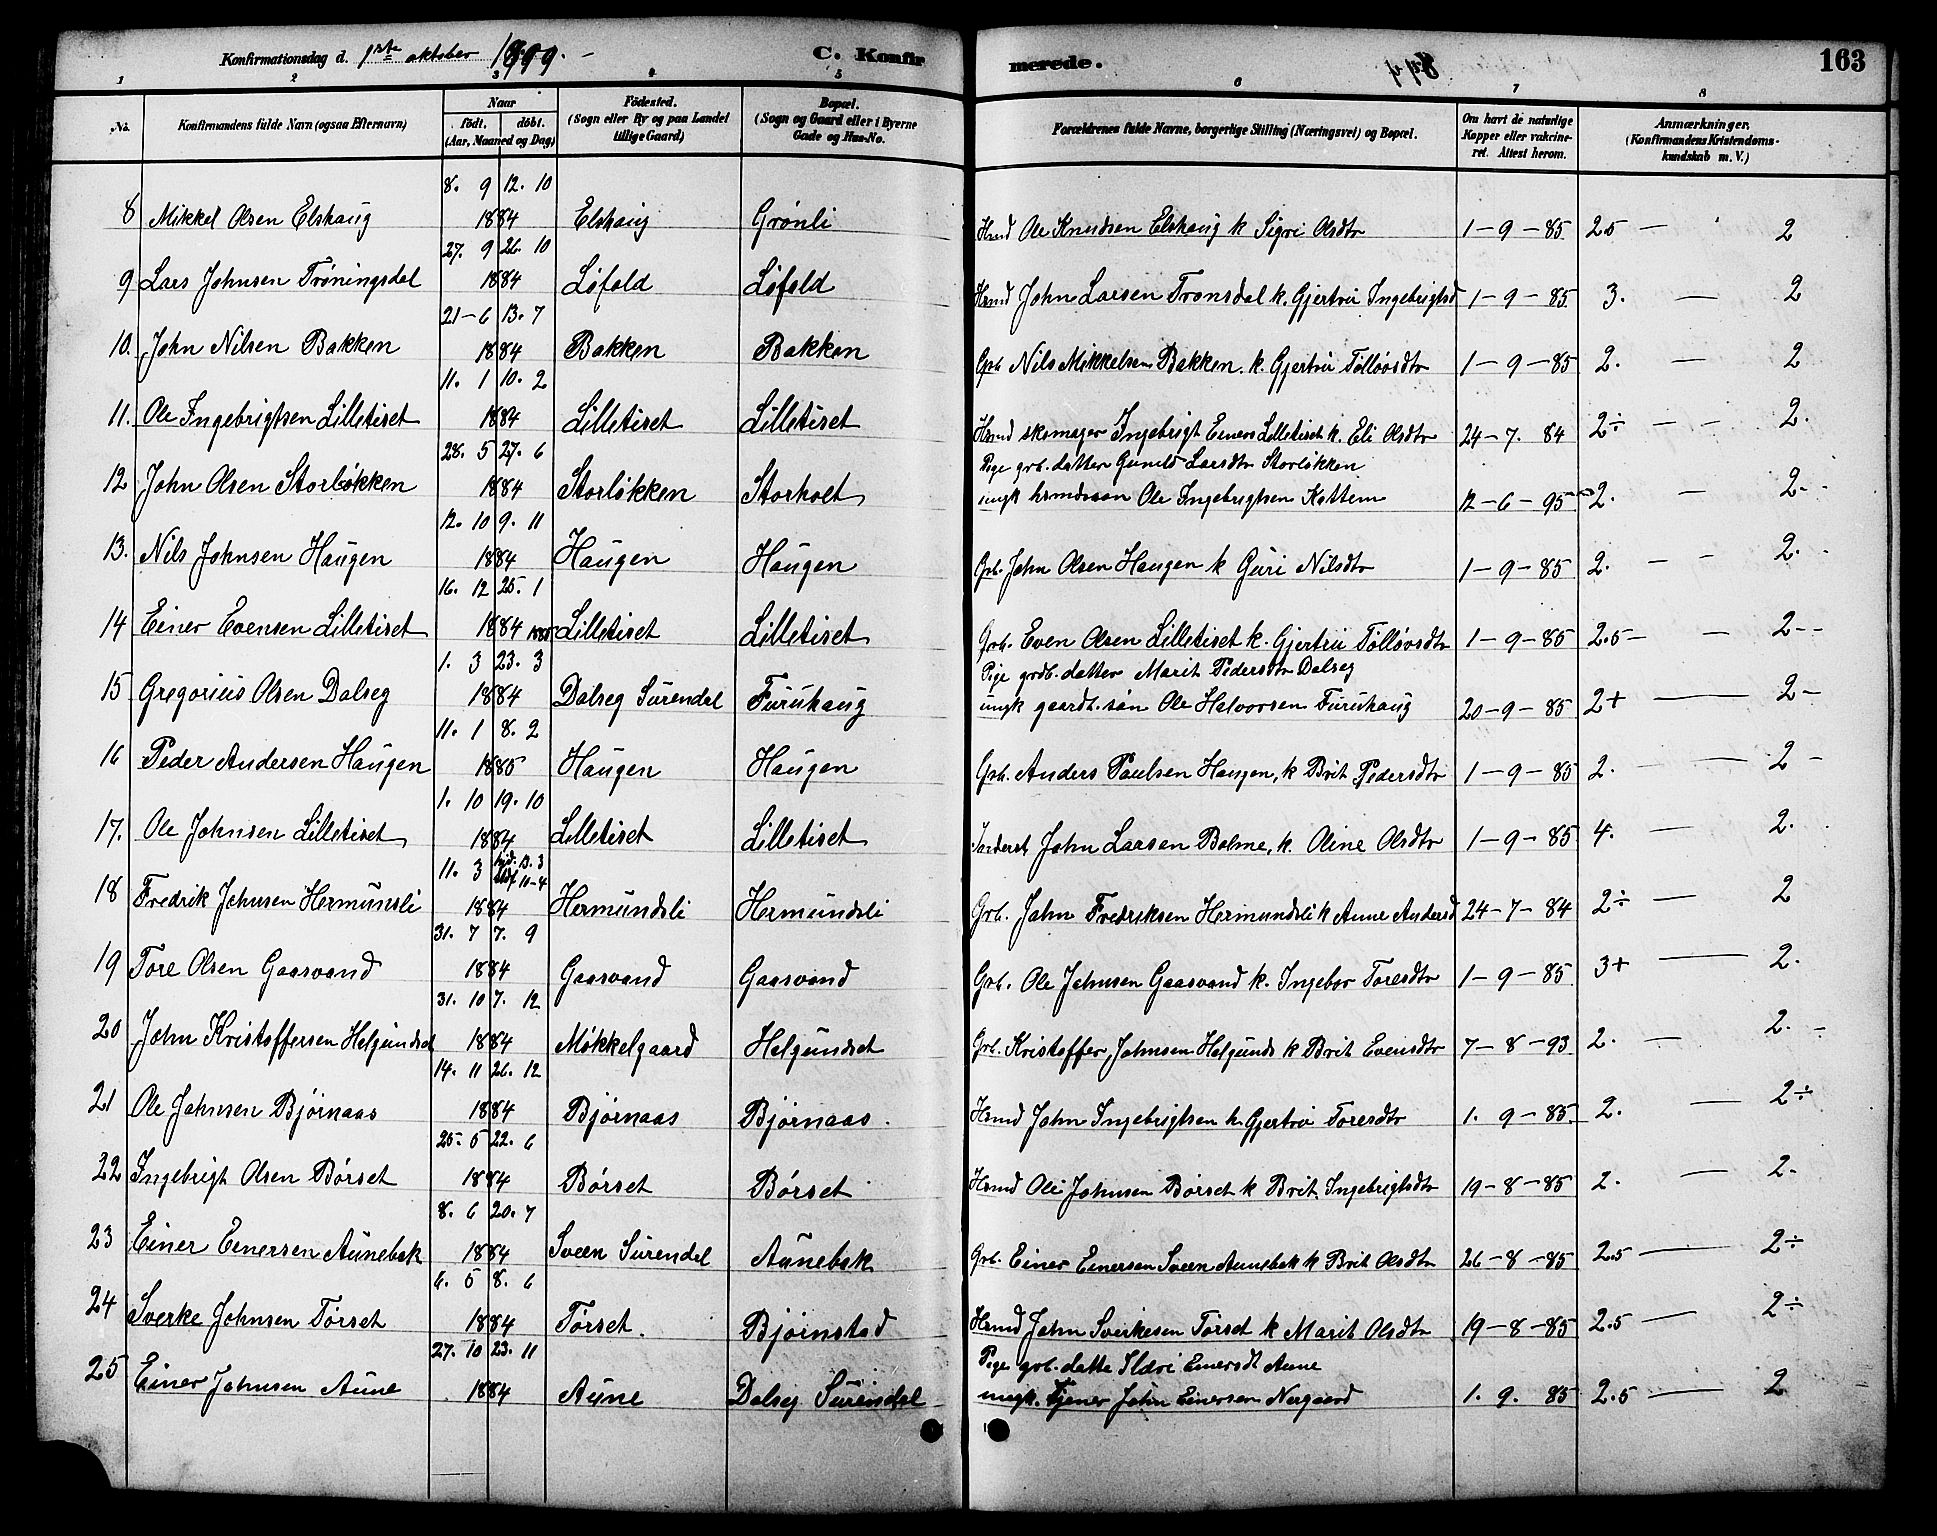 Konfirmationsdag d. 1ste oktober 1899. C. Konfirmerede. 163
1 2 3 4 5 6 7 8
No. Konfirmandens fulde Navn (ogsaa Efternavn) Naar födt. döbt. (Aar, Maaned og Dag) Födested. (Sogn eller By og paa Landet tillige Gaard) Bopæl. (Sogn og Gaard eller i Byerne Gade og Hus-No. Forældrenes fulde Navne, borgerlige Stilling (Næringsvei) og Bopæl. Om havt de naturlige Kopper eller vakcineret. Attest herom. Anmærkninger. (Konfirmandens Kristendomskundskab m. V.)
8. 9 12. 10
8 Mikkel Olsen Elshaug 1884 Elshaug Grönli Hmd Ole Knudsen Elshaug k Sigri Olsdtr 1-9-85 2.5 — 2
27. 9 26. 10
9 Lars Johnsen Tröningsdal 1884 Löfald Löfald Hmd John Larsen Tronsdal k. Gjertrü Ingebrigtsd 1-9-85 3. — 2
21-6 13. 7
10. John Nilsen Bakken 1884 Bakken Bakken Grb Nils Mikkelsen Bakken. k. Gjertrü Töllövsdtr 1-9-85 2. — 2
11. 1 10. 2
11. Ole Ingebrigtsen Lilletiset 1884 Lilletiset Lilletiset Hmd skomager Ingebrigt Einers Lilletiset k. Eli Olsdtr 24-7. 84 2÷ — — 2.
28. 5 27. 6 Pige grb. datter Gunild Larsdtr Storløkken
12 John Olsen Storløkken 1884 Storløkken Storholt ungk hmdssøn Ole Ingebrigtsen Kattem 12-6-95 2. — 2-
12. 10 9. 11
13. Nils Johnsen Haugen 1884 Haugen Haugen Grb. John Olsen Haugen k Guri Nilsdtr 1-9-85 2. — 2.
16. 12 25. 1
14 Einer Evensen Lilletiset 1884 1885 Lilletiset Lilletiset Grb. Even Olsen Lilletiset k. Gjertrü Tölløvsdtr 1-9-85 2.5 — 2--
1. 3 23. 3 Pige grdb. datter Marit Pedersdtr Dalseg
15 Gregorius Olsen Dalseg 1884 Dalseg Surendal Furuhaug ungk gaardb. søn Ole Halvorsen Furuhaug 20-9-85 2+ — 2-
11. 1 8. 2
16 Peder Andersen Haugen 1885 Haugen Haugen Grb. Anders Paulsen Haugen, k Brit Pedersdtr 1-9-85 2. — 2 -
1. 10 19. 10
17. Ole Johnsen Lilletiset 1884 Lilletiset Lilletiset Inderst John Larsen Bolme, k. Oline Olsdtr 1-9-85 4. — 2.
11. 3 hjd. 13. 3 stdf 11-4
18 Fredrik Johnsen Hermundsli 1884 Hermundsli Hermundsli Grb. John Fredriksen Hermundsli k Anne Andersd 24-7-84 2÷ — 2
31. 7 7. 9
19 Tore Olsen Gaasvand 1884 Gaasvand Gaasvand Grb. Ole Johnsen Gaasvand k. Ingebor Toresdtr 1-9-85 3+ — 2.
31. 10 7. 12
20 John Kristoffersen Helgundset 1884 Møkkelgaard Helgundset Grb. Kristoffer Johnsen Helgunds k Brit Evensdtr 7-8-93 2. — 2. -
14. 11 26. 12
21 Ole Johnsen Bjørnaas 1884 Bjørnaas Bjørnaas. Hmd John Ingebrigtsen k. Gjertrü Toresdtr 1. 9-85. 2. — 2÷
25. 5 22. 6
22 Ingebrigt Olsen Børset 1884 Børset Børset Hmd Ole Johnsen Børset k Brit Ingebrigtsdtr 19-8-85 2. — 2.
8. 6 20. 7
23 Einer Einersen Aunebak 1884 Sveen Surendal Aunebak Grb. Einer Einersen Sveen Aunebak k Brit Olsdtr 26-8-85 2.5 — 2÷
6. 5 8. 6
24 Sverke Johnsen Tørset 1884 Tørset. Bjørnstad Hmd John Sverkesen Tørset k Marit Olsdtr 19-8-85 2.5 — 2÷
27. 10 23. 11 Pige grb. datte Ildri Einersdt Aune
25 Einer Johnsen Aune 1884 Aune Dalseg Surendal ungk. Tjener John Einersen Nergaard 1. 9. 85 2.5 — 2